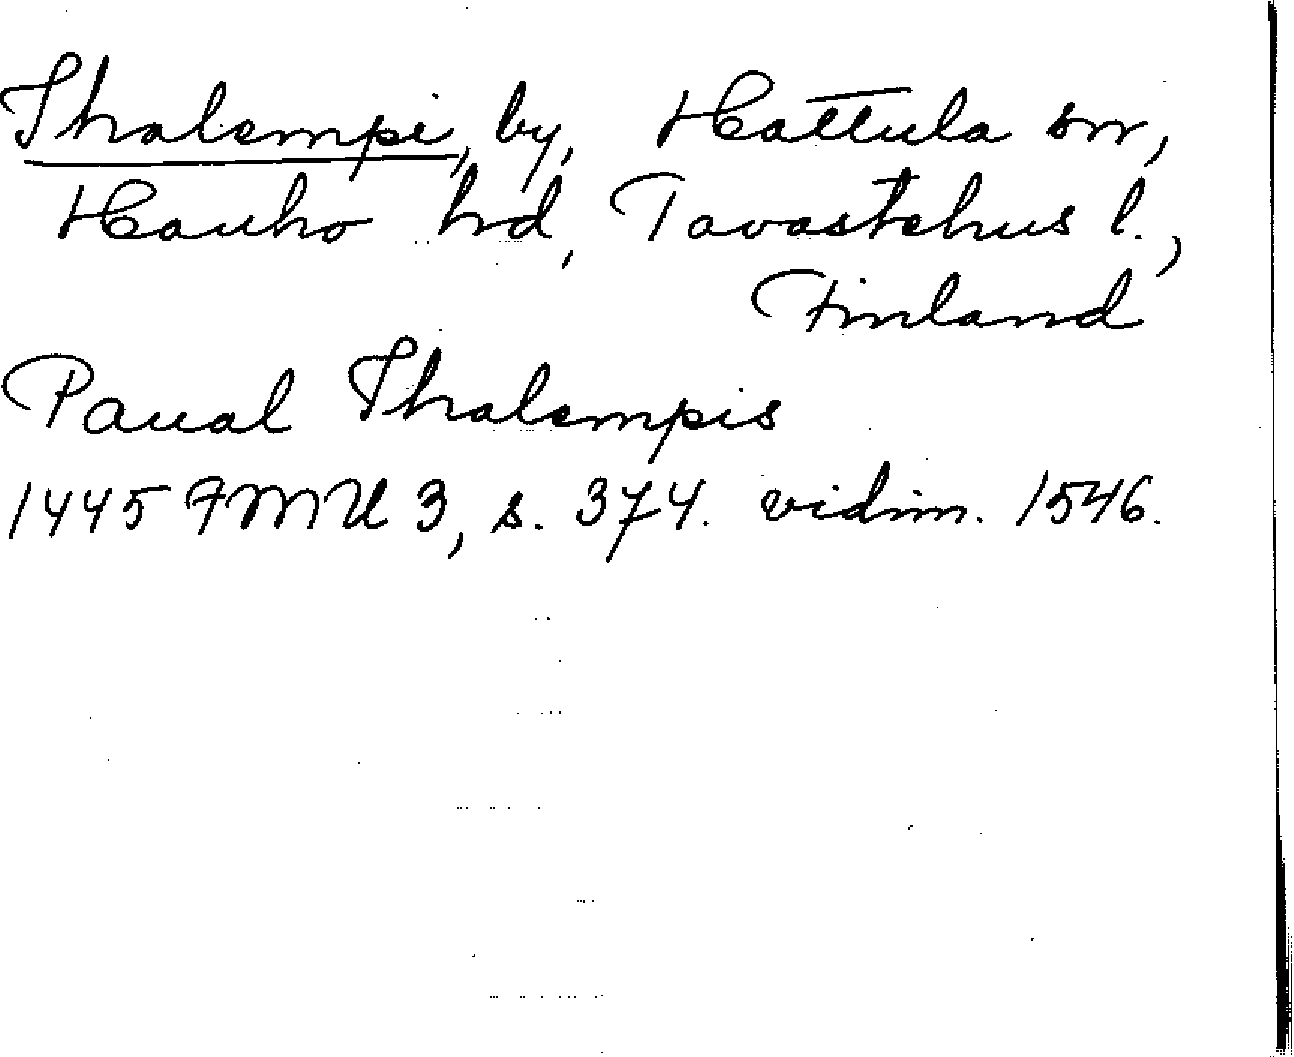 Thalempi, by, Hattula sn,
Hauho hd, Tavastehus l.,
Finland
Paual Thalempis
1445 FMU 3, s. 374. vidim. 1546.